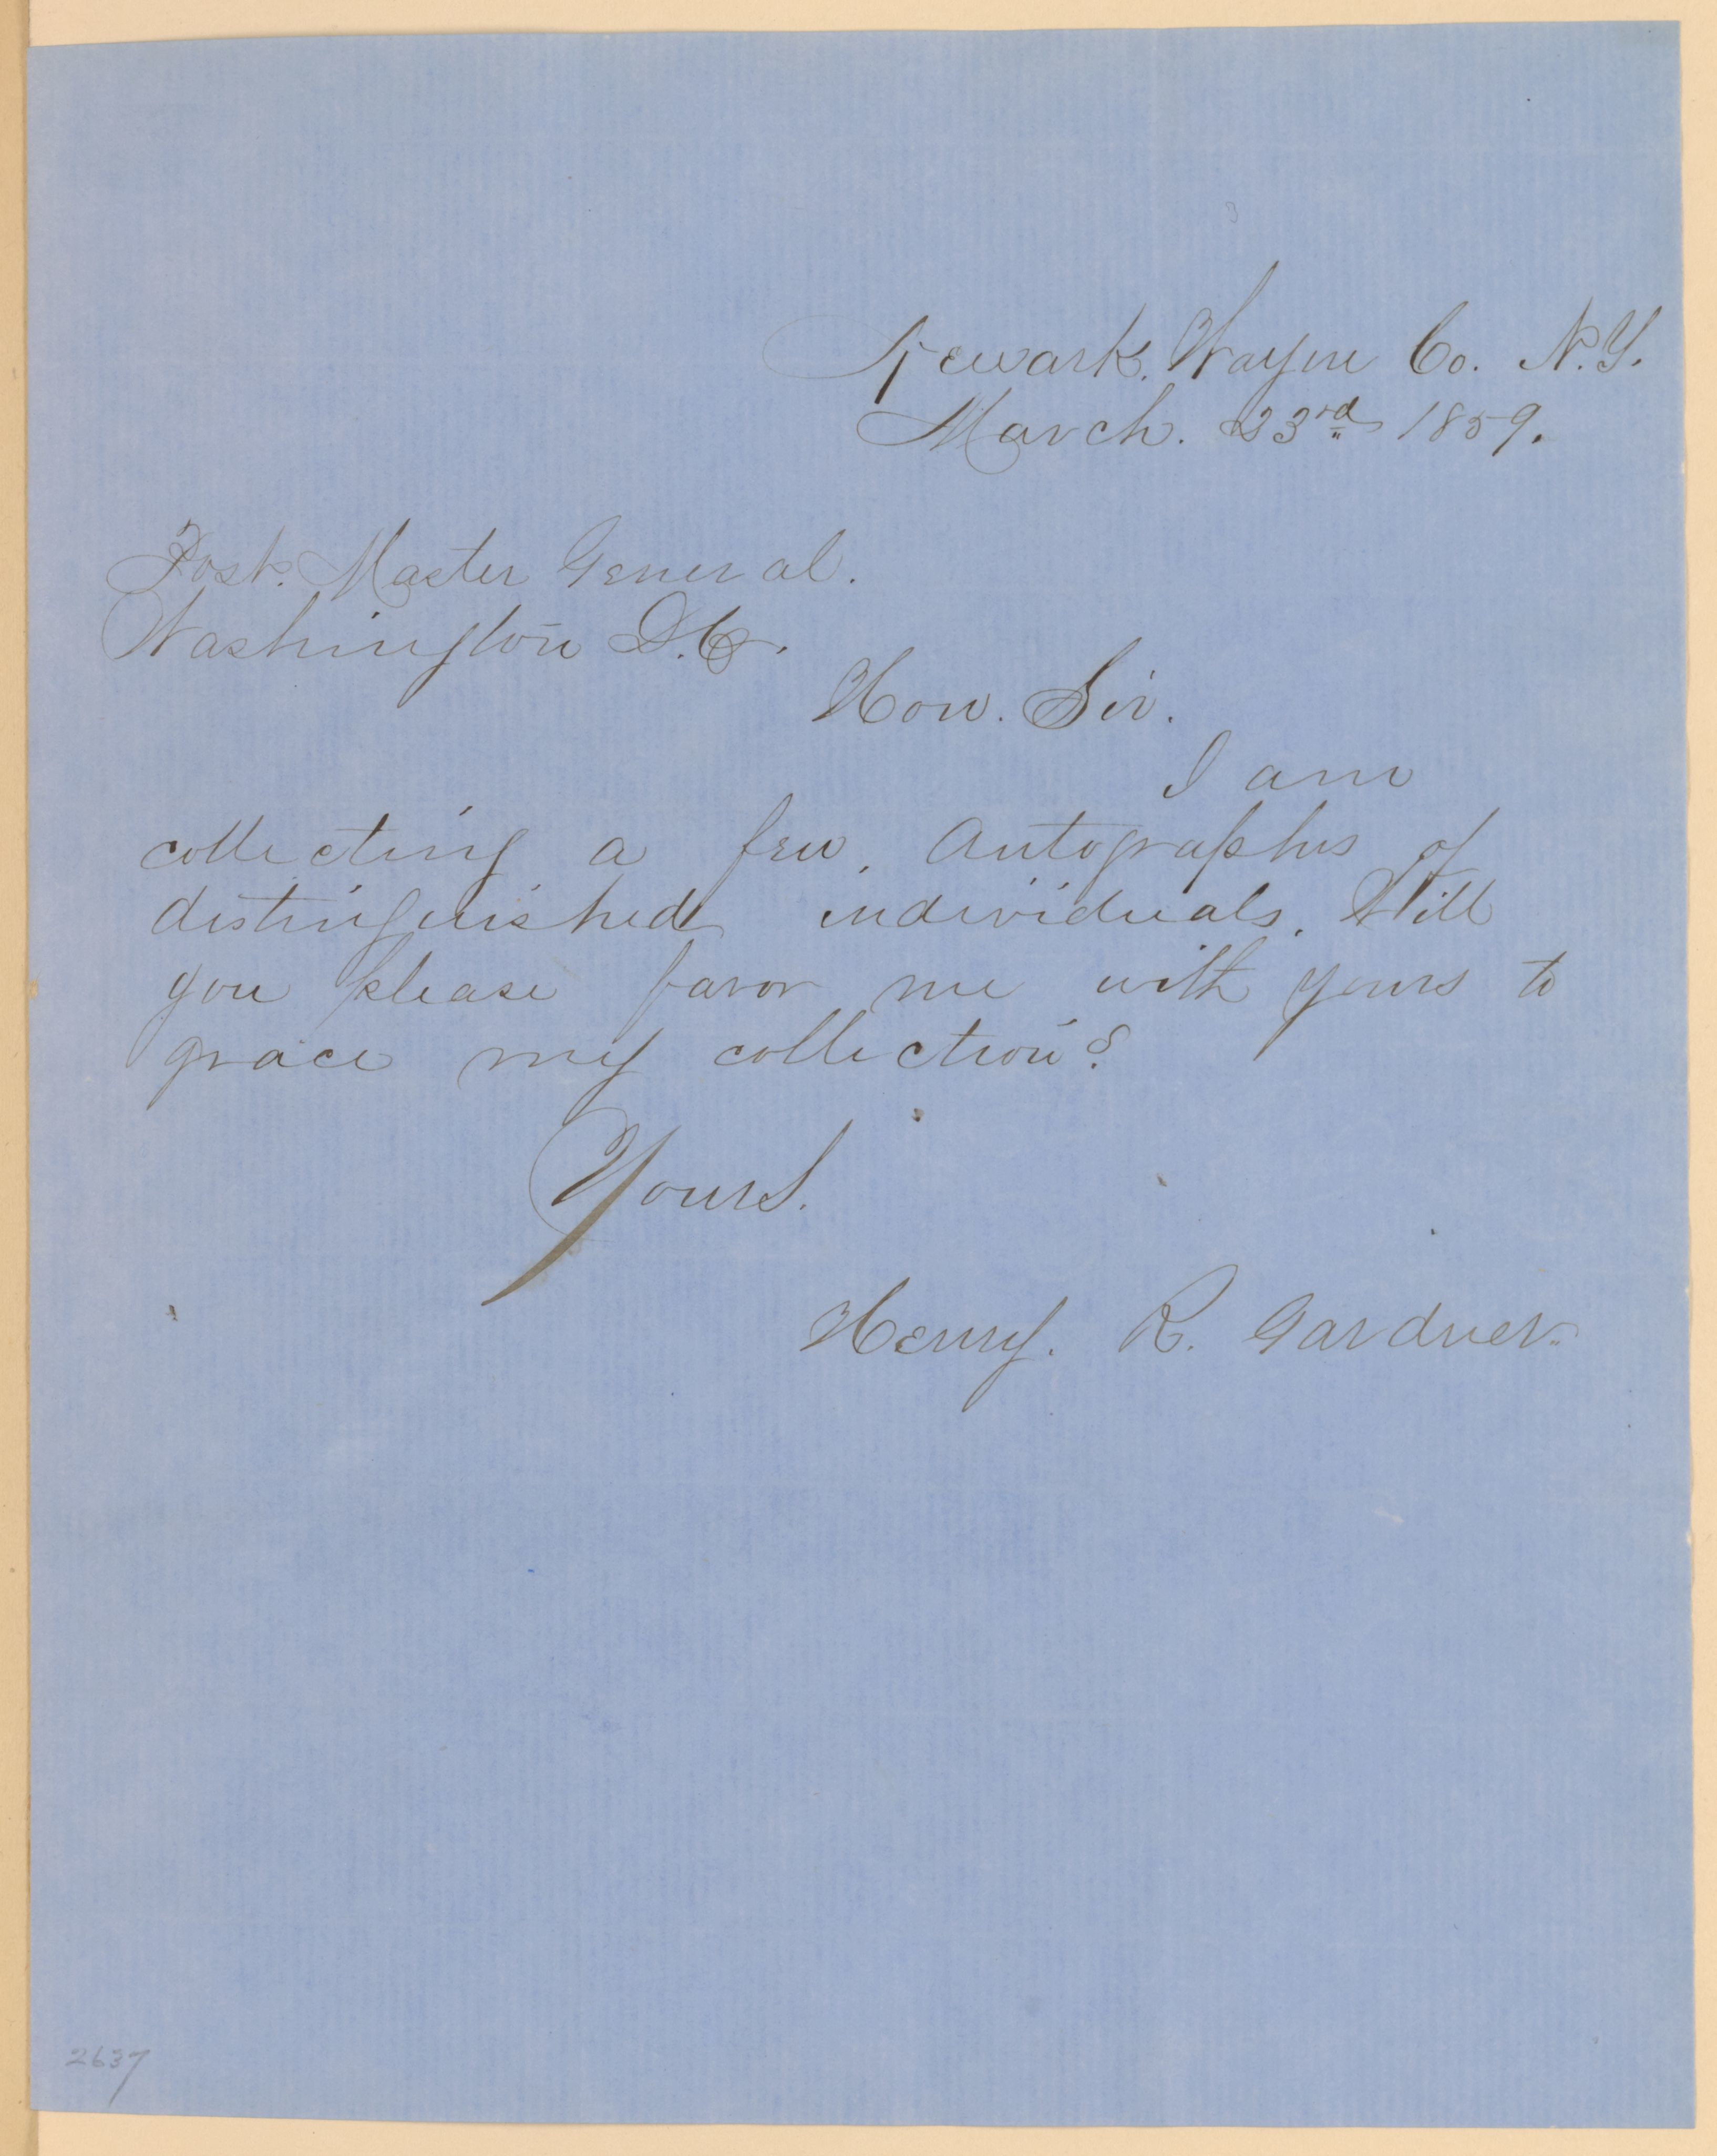 Newark. Wayne Co. N.Y.
March. 23rd 1859.
Post. Master General.
Washington D.C.
Hon. Sir.
I am
collecting a few. Autographs of
distinguished individuals. Will
you please favor me with yours to
grace my collection?
Yours.
Henry. R. Gardner.
2637